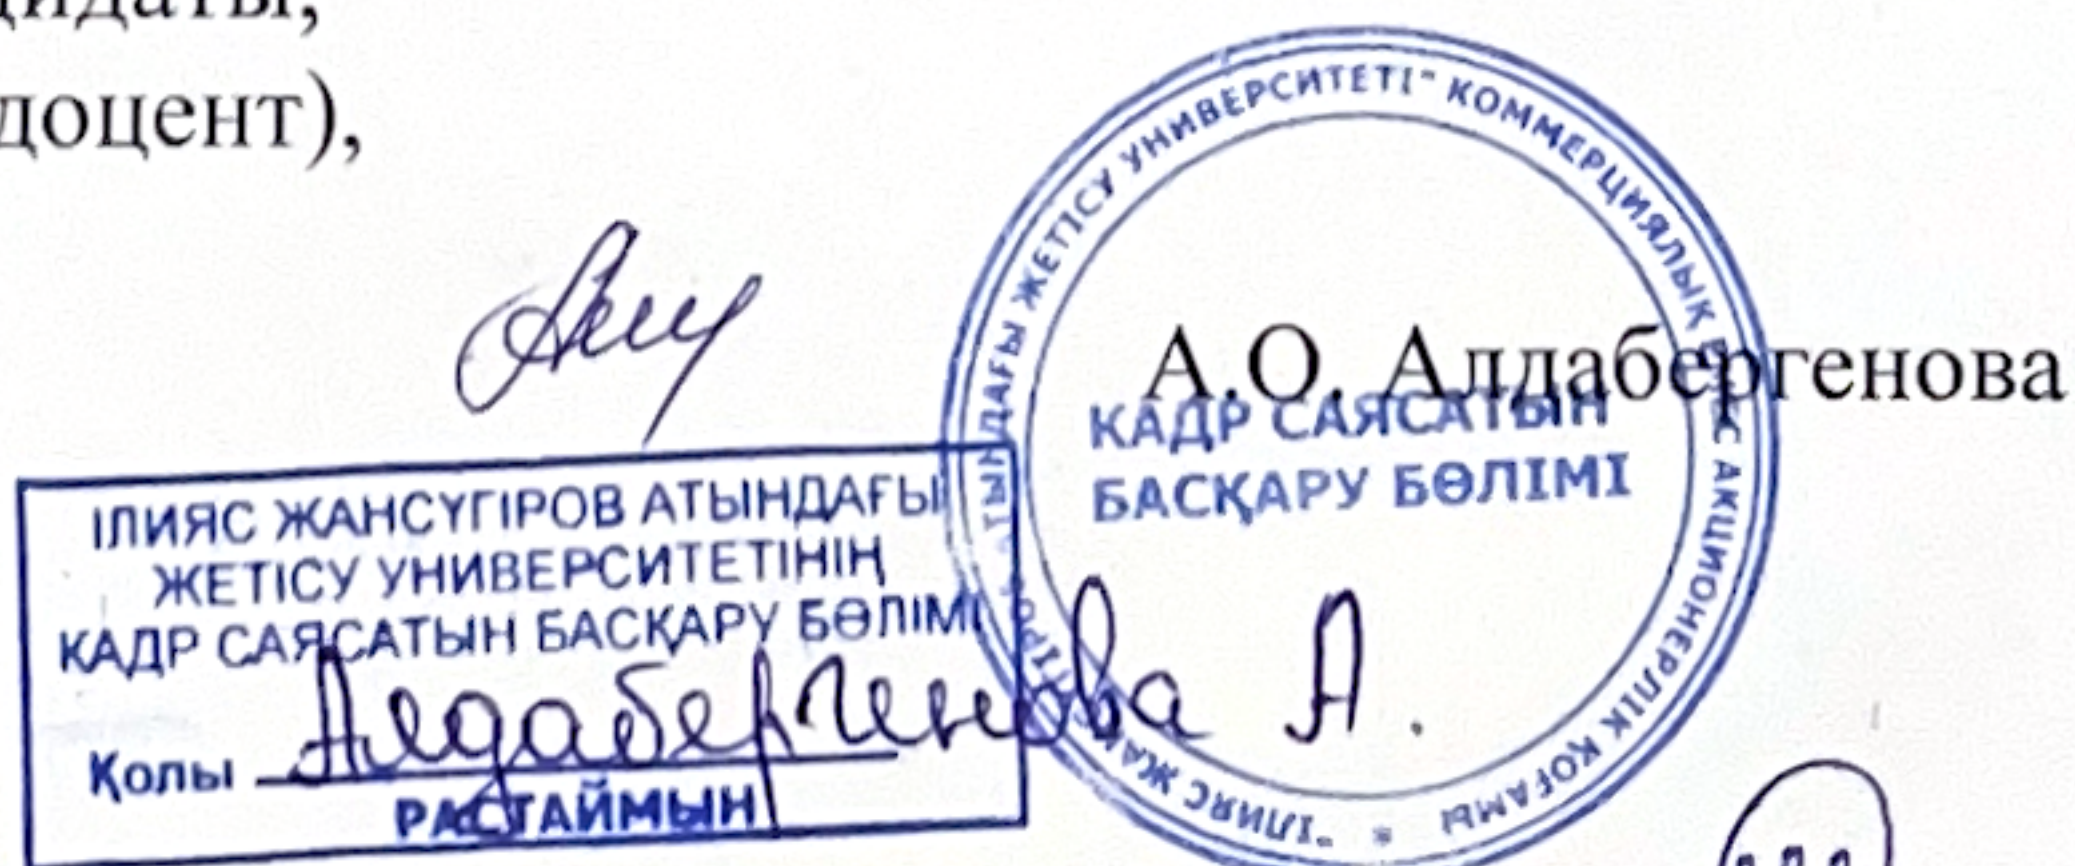 доцент),
А.О. Алдабергенова
"ІЛИЯС ЖАНСҮГІРОВ АТЫНДАҒЫ ЖЕТІСУ УНИВЕРСИТЕТІ" КОММЕРЦИЯЛЫҚ ЕМЕС АКЦИОНЕРЛІК ҚОҒАМЫ *
КАДР САЯСАТЫН
БАСҚАРУ БӨЛІМІ
ІЛИЯС ЖАНСҮГІРОВ АТЫНДАҒЫ
ЖЕТІСУ УНИВЕРСИТЕТІНІҢ
КАДР САЯСАТЫН БАСҚАРУ БӨЛІМІ
Қолы Алдабергенова А.
РАСТАЙМЫН